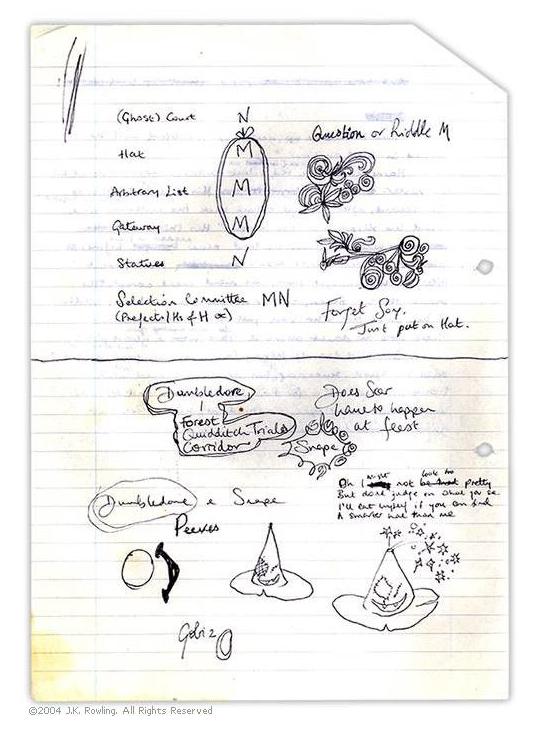 (Ghost) Court N
Hat M
Arbitrary List M
Gateway M
Statues N
Selection Committee MN
(Prefects/Hs of H
Question or Riddle M
Forget Say.
Just put on Hat.
Dumbledore
Forest
Quidditch Trials
Corridor
Does Scar
have to happen
at feast
Snape
Dumbledore Snape
Peeves
Oh I might not look too pretty
But don't judge on what you see
I'll eat myself if you can find
A smarter hat than me
©2004 J.K. Rowling. All Rights Reserved